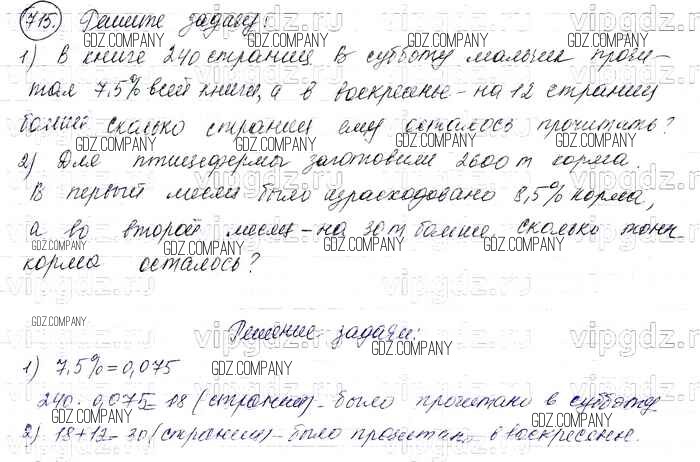 715. Решите задачу:
1) В книге 240 страниц. В субботу мальчик прочи-
тал 7,5% всей книги, а в воскресенье - на 12 страниц
больше. Сколько страниц ему осталось прочитать?
2) Для птицефермы заготовили 2600 т корма.
В первый месяц было израсходовано 8,5% корма,
а во второй месяц - на 30 т больше. Сколько тонн
корма осталось?
Решение задачи:
1) 7,5% = 0,075
240 · 0,075 = 18 (страниц) - было прочитано в субботу
2) 18+12 = 30 (страниц) - было прочитано в воскресенье.
GDZ.COMPANY
vipgdz.ru